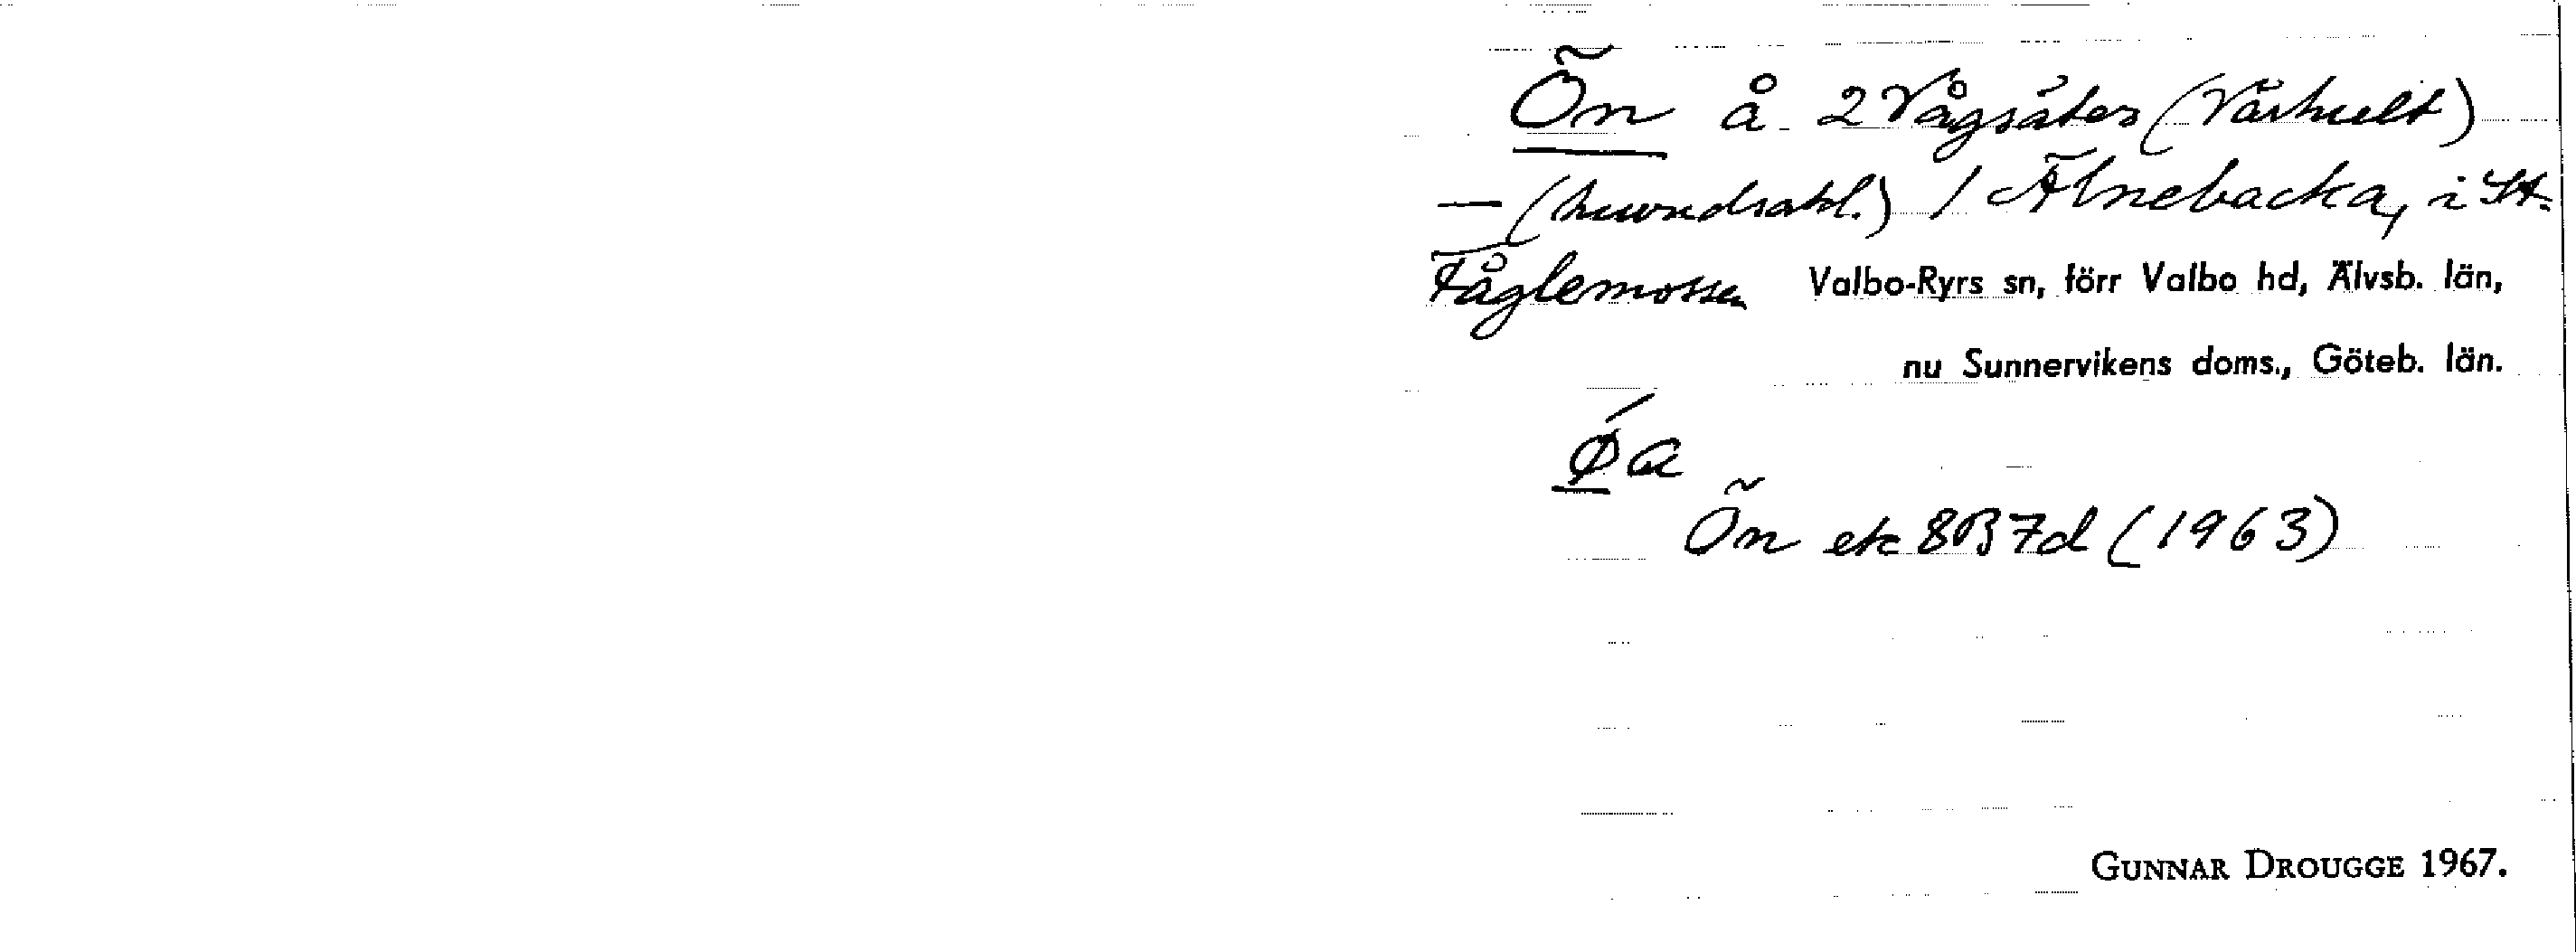 Ön å 2 Vågsäter (Vårhult)
— (huvudsakl.) / Älnebacka, i St.
Fåglemossen Valbo-Ryrs sn, förr Valbo hd, Älvsb. län,
nu Sunnervikens doms., Göteb. län.
ǿa
Ön ek 8B7d (1963)
GUNNAR DROUGGE 1967.